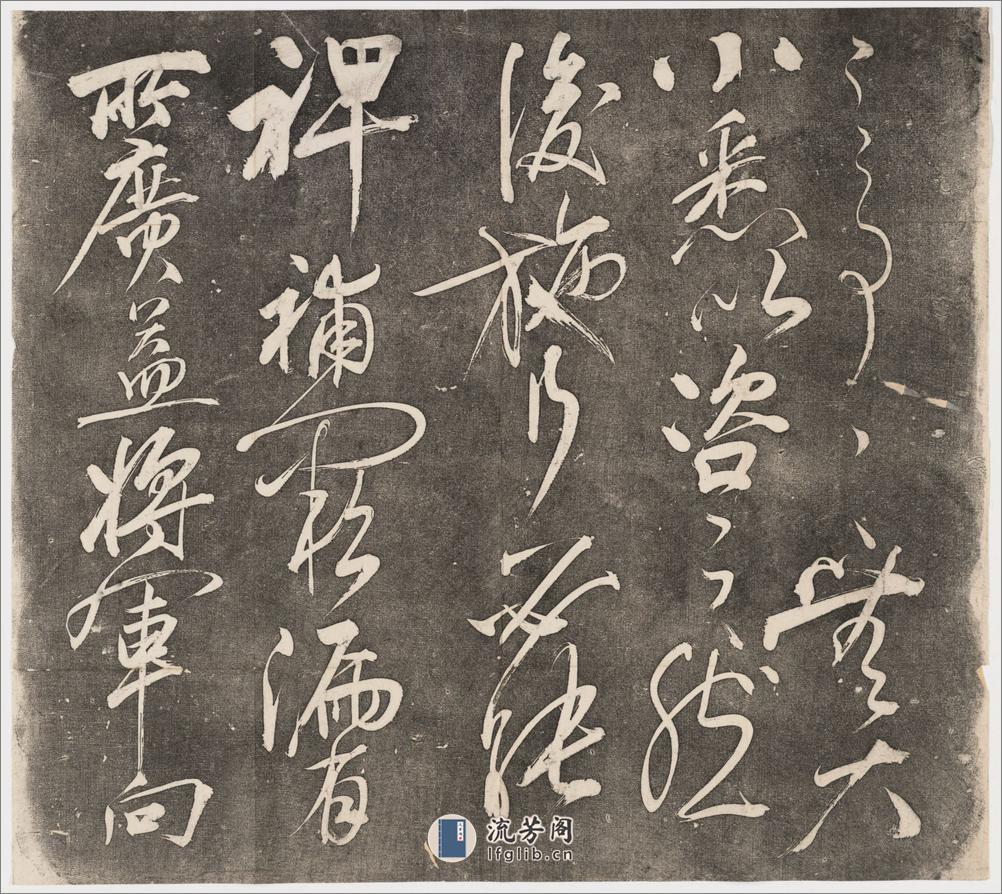 之事事無大
小悉以咨之然
後施行必能
裨補闕漏有
所廣益將軍向
流芳阁
lfglib.cn